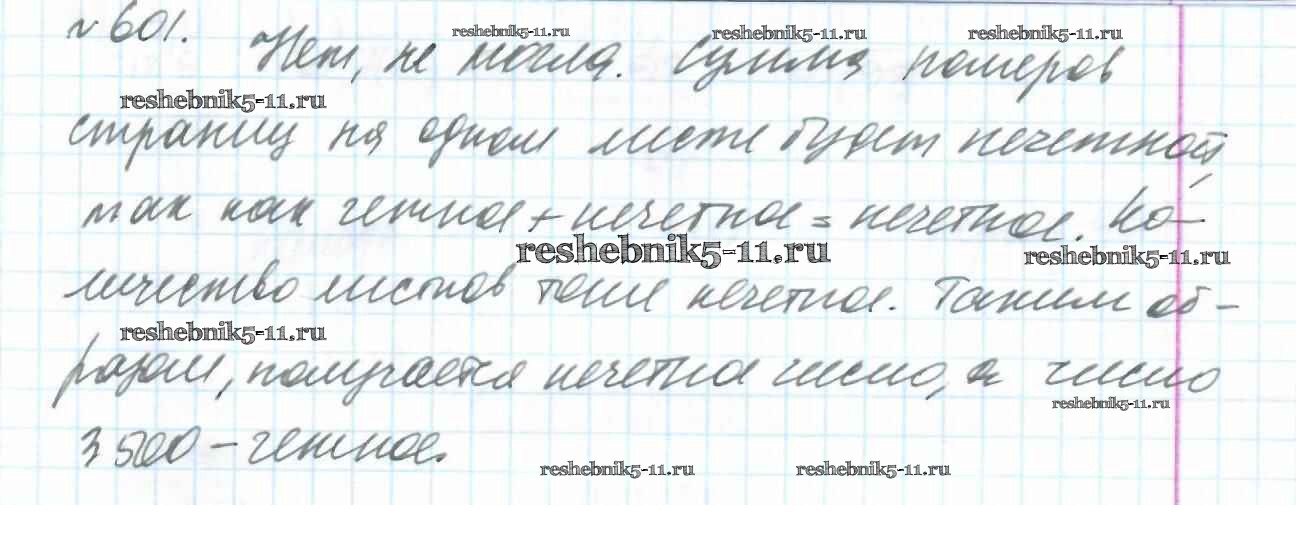 №601.
Нет, не могла. Сумма номеров
страниц на одном листе будет нечетной,
так как четное + нечетное = нечетное. Ко-
личество листов тоже нечетное. Таким об-
разом, получается нечетное число, а число
3500 - четное.
reshebnik5-11.ru
reshebnik5-11.ru
reshebnik5-11.ru
reshebnik5-11.ru
reshebnik5-11.ru
reshebnik5-11.ru
reshebnik5-11.ru
reshebnik5-11.ru
reshebnik5-11.ru
reshebnik5-11.ru